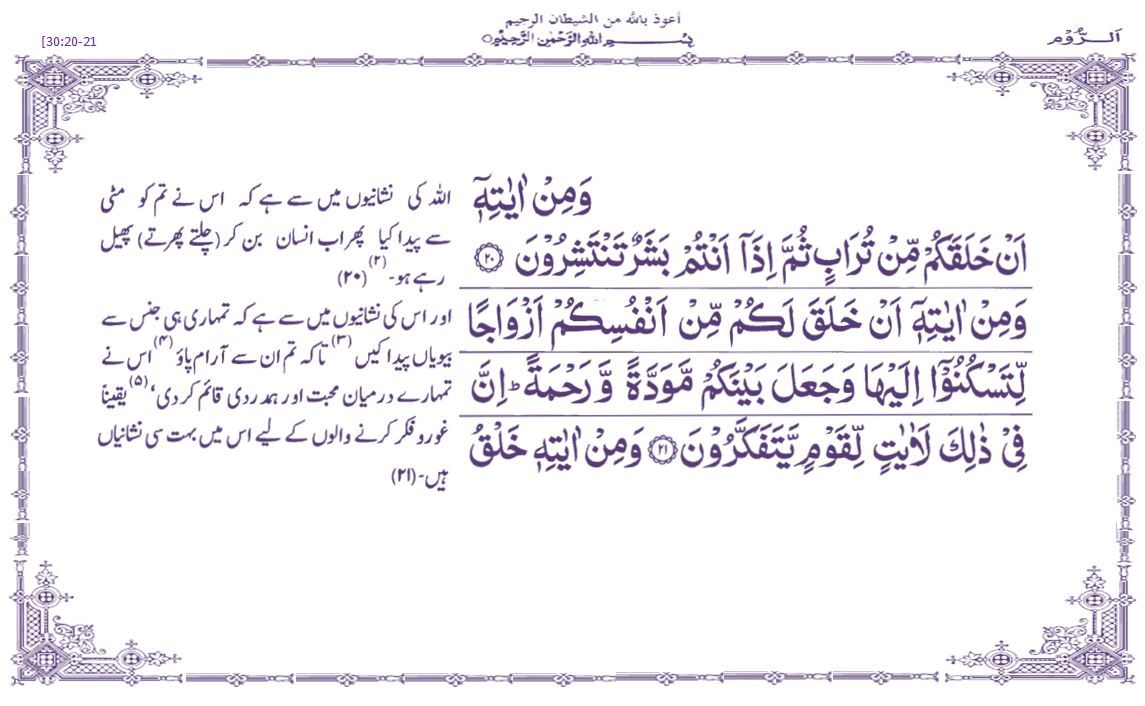 أعوذ بالله من الشيطان الرجيم
[30:20-21
بِسْمِ اللّٰهِ الرَّحْمٰنِ الرَّحِيْمِ○
اَلرُّوْم
وَمِنْ اٰيٰتِهٖٓ
اَنْ خَلَقَكُمْ مِّنْ تُرَابٍ ثُمَّ اِذَآ اَنْتُمْ بَشَرٌ تَنْتَشِرُوْنَ ۝٢٠
وَمِنْ اٰيٰتِهٖٓ اَنْ خَلَقَ لَكُمْ مِّنْ اَنْفُسِكُمْ اَزْوَاجًا
لِّتَسْكُنُوْٓا اِلَيْهَا وَجَعَلَ بَيْنَكُمْ مَّوَدَّةً وَّرَحْمَةً ؕ اِنَّ
فِيْ ذٰلِكَ لَاٰيٰتٍ لِّقَوْمٍ يَّتَفَكَّرُوْنَ ۝٢١ وَمِنْ اٰيٰتِهٖ خَلْقُ
اللہ کی نشانیوں میں سے ہے کہ اس نے تم کو مٹی
سے پیدا کیا پھر اب انسان بن کر (چلتے پھرتے) پھیل
رہے ہو۔ (۲) (۲۰)
اور اس کی نشانیوں میں سے ہے کہ تمہاری ہی جنس سے
بیویاں پیدا کیں (۳) تاکہ تم ان سے آرام پاؤ (۴) اس نے
تمہارے درمیان محبت اور ہمدردی قائم کر دی، (۵) یقیناً
غور و فکر کرنے والوں کے لیے اس میں بہت سی نشانیاں
ہیں۔ (۲۱)